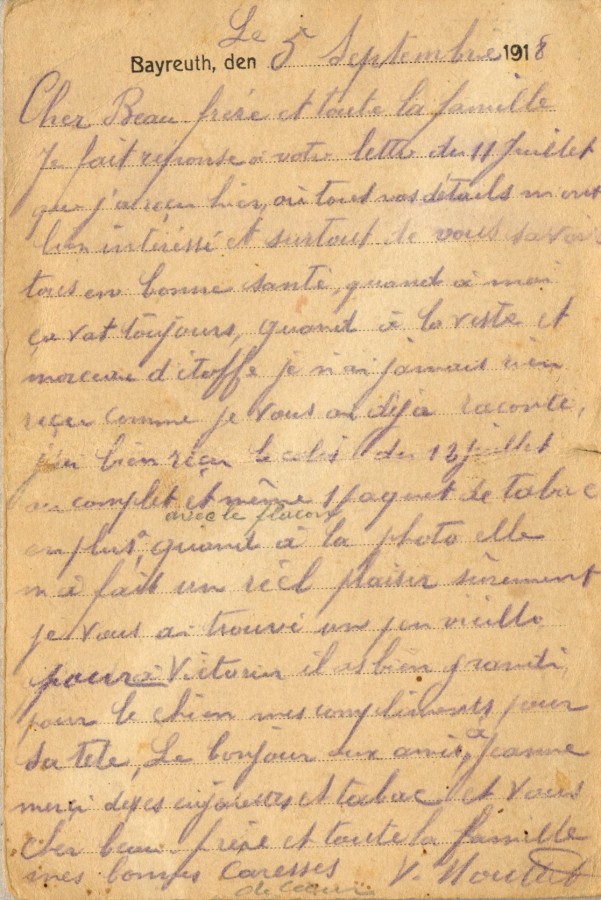 Le
Bayreuth, den 5 Septembre 1918
Cher Beau frère et toute la famille
Je fait reponse à votre lettre du 11 Juillet
que j'ai reçu hier, où tout vos détails m'ont
bien intéréssé et surtout de vous savoir
tous en bonne santé, quand à moi
ça vat toujours, quand à la veste et
morceau d'étoffe je n'ai jamais rien
reçu comme je vous ai déja raconté,
j'ai bien reçu le colis du 12 juillet
au complet et même 1 paquet de tabac
avec le flacon
en plus, quand à la photo elle
m'a fait un réél plaisir surement
je vous ai trouvé un peu vieillo
pour Victorin il as bien grandi,
pour le chien mes compliments pour
sa tete, Le bonjour aux amis, à Jeanne
merci de ses cigarettes et tabac et vous
Cher beau frère et toute la famille
mes bonnes caresses V.
de coeur